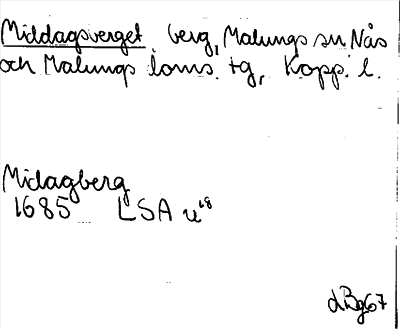 Middagsberget berg, Malungs sn Nås
och Malungs doms. tg, Kopp. l.
Midagberg
1685 LSA u18
dBg67